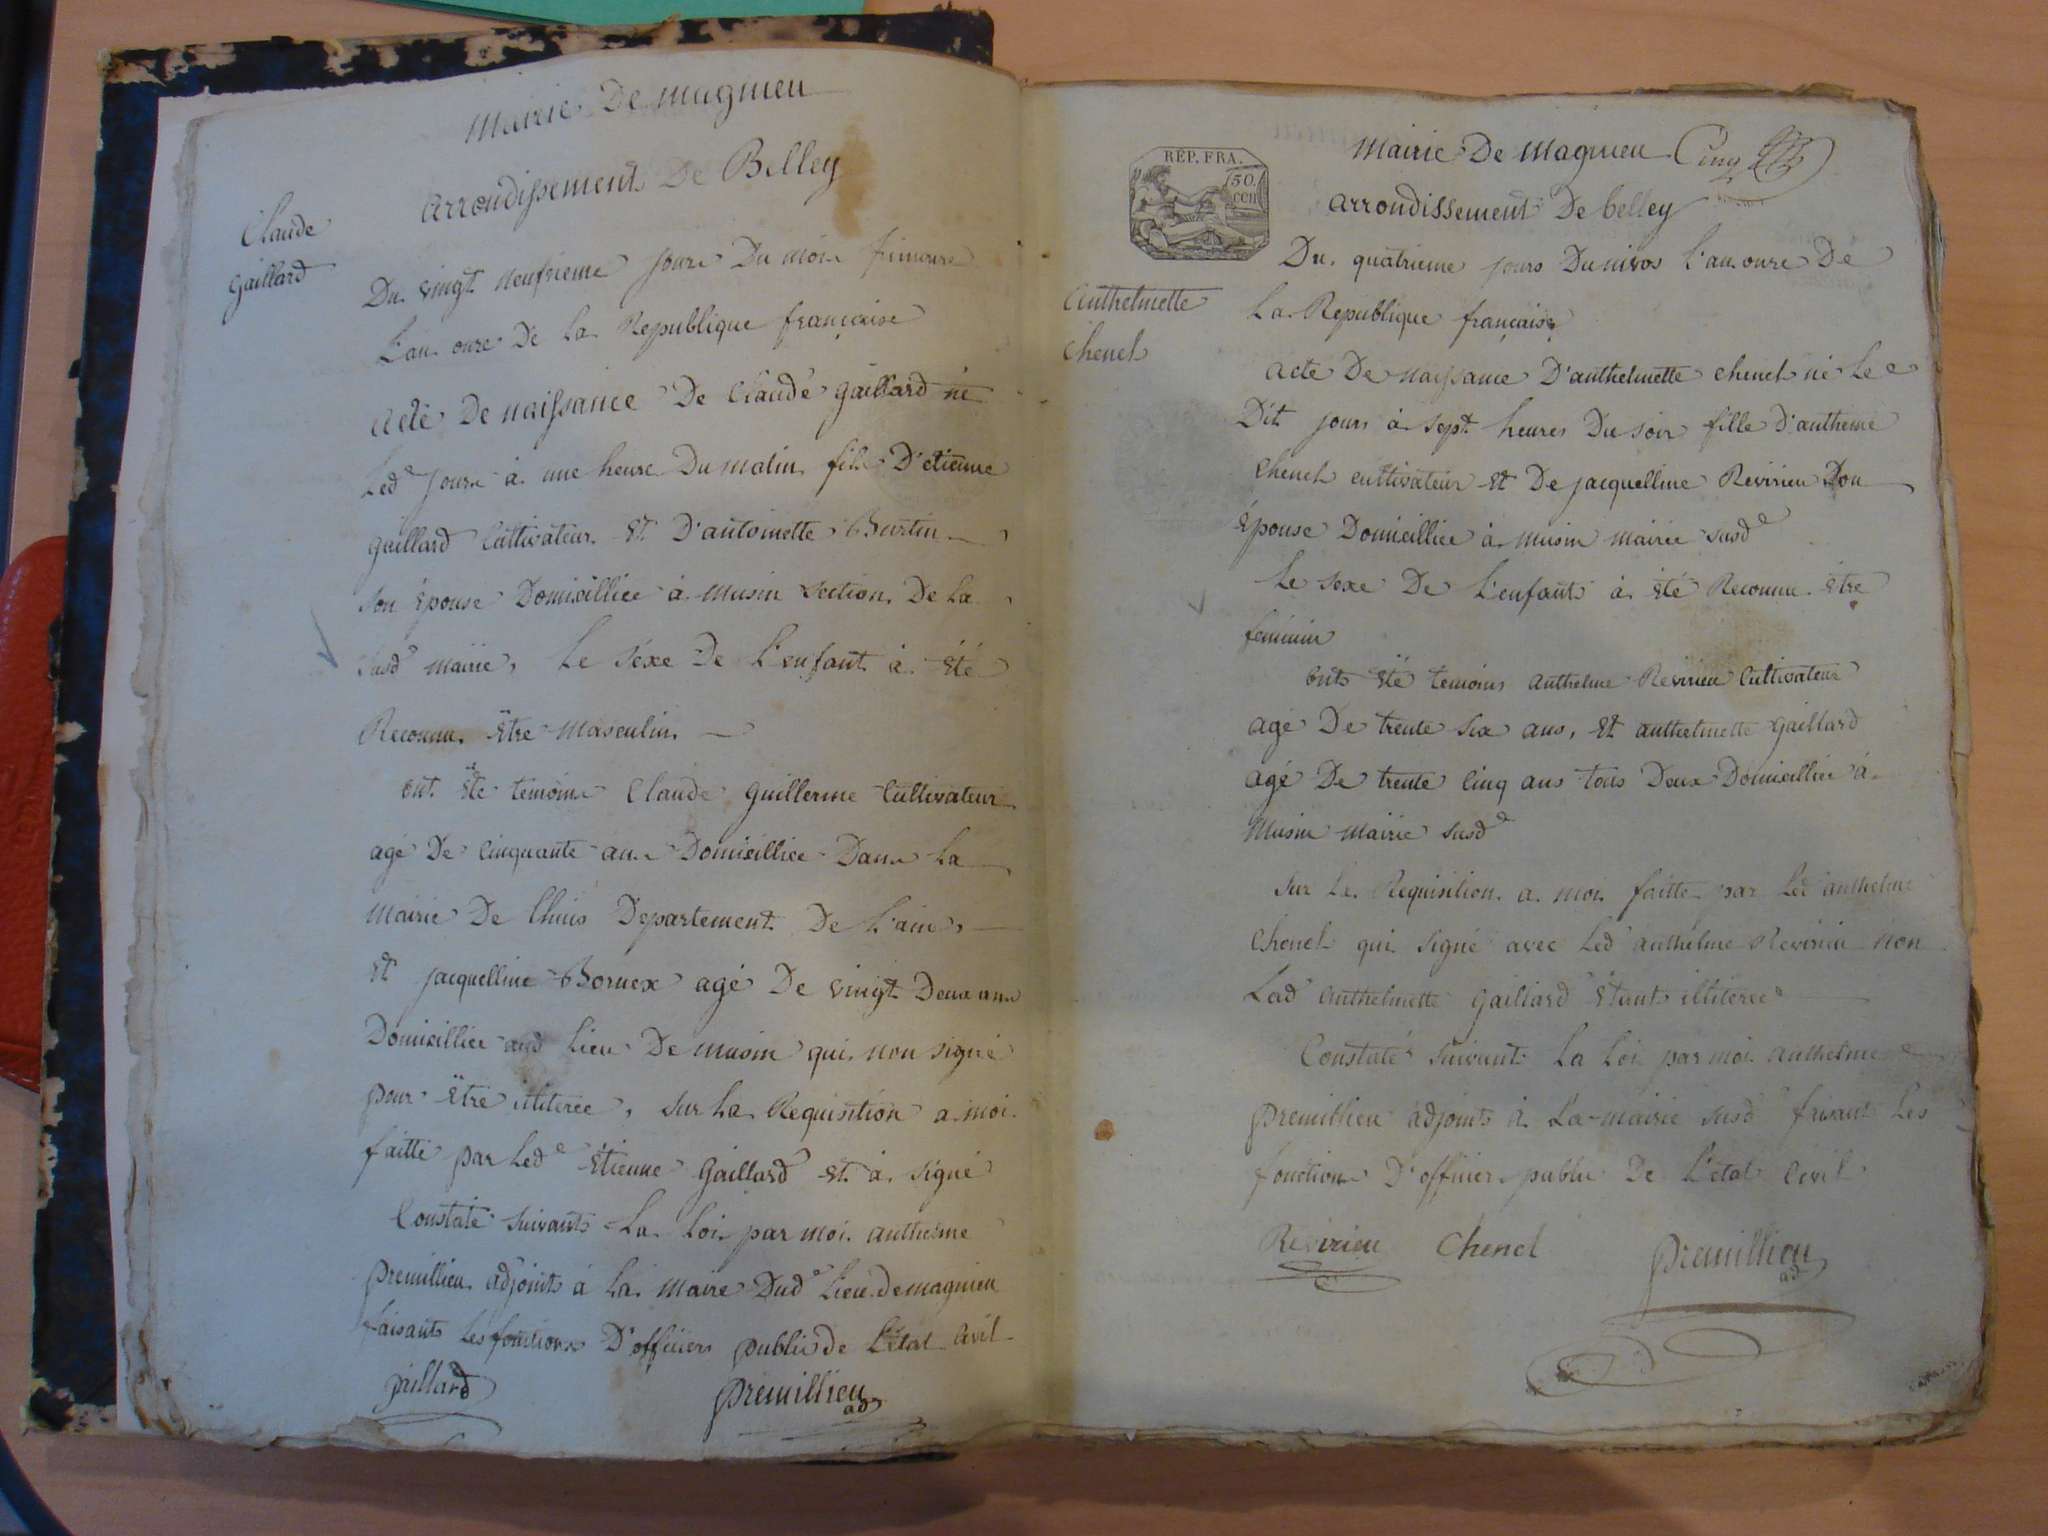 Mairie De magnieu
arrondissement De Belley
Claude
gaillard
Du vingt neufvieme jours Du mois frimaire
L'an onze De la Republique française
acte De naissance De Claude gaillard né
Led.e jours à une heure Du matin fils D'etienne
gaillard Cultivateur Et D'antoinette Burtin
son épouse Domicilliée à musin section De la
susd.e mairie, Le séxe De L'enfant à été
Reconnu Être masculin
ont été temoins Claude guillerme Cultivateur
agé De cinquante ans Domicilliée Dans La
mairie De Chuis Departement De L'ain,
Et jacquelline Bornex agé De vingt Deux ans
Domicilliée aud Lieu De musin qui non signé
pour être iliterée, sur La Requisition a moi
faitte par Led.e Étienne gaillard Et à signé
Constaté suivants La Loi par moi anthelme
premillieu adjoints à La maire Dud.e Lieu de magnieu
faisants Les fonctions D'officiers public de L'état Civil
gaillard
premillieu
ad
RÉP. FRA.
50.
CEN
mairie De magnieu Cinq
arrondissement De belley
Anthelmette
Chenel
Du quatrieme jours Du nivos L'an onze De
La Republique française
acte De naissance D'anthelmette chenel né Le
Dit jours à sept heures Du soir fille d'antheme
Chenel cultivateur Et De jacquelline Revirieu Son
Épouse Domicilliée à musin mairie susd.e
Le sexe De L'enfants à été Reconnu Être
feminin
onts été temoins anthelme Revirieu Cultivateur
agé De trente six ans, Et anthelmette gaillard
agé De trente Cinq ans tous Deux Domicilliée à
Musin mairie susd.e
sur La Requisition a moi faitte par Led anthelme
Chenel qui signé avec Led anthelme Revirieu non
Lad Anthelmette gaillard étant illiterée
Constaté suivant La Loi par moi anthelme
premillieu adjoints à La mairie susd faisant Les
fonctions D'officier public De L'état Civil
Revirieu Chenel premillieu
ad